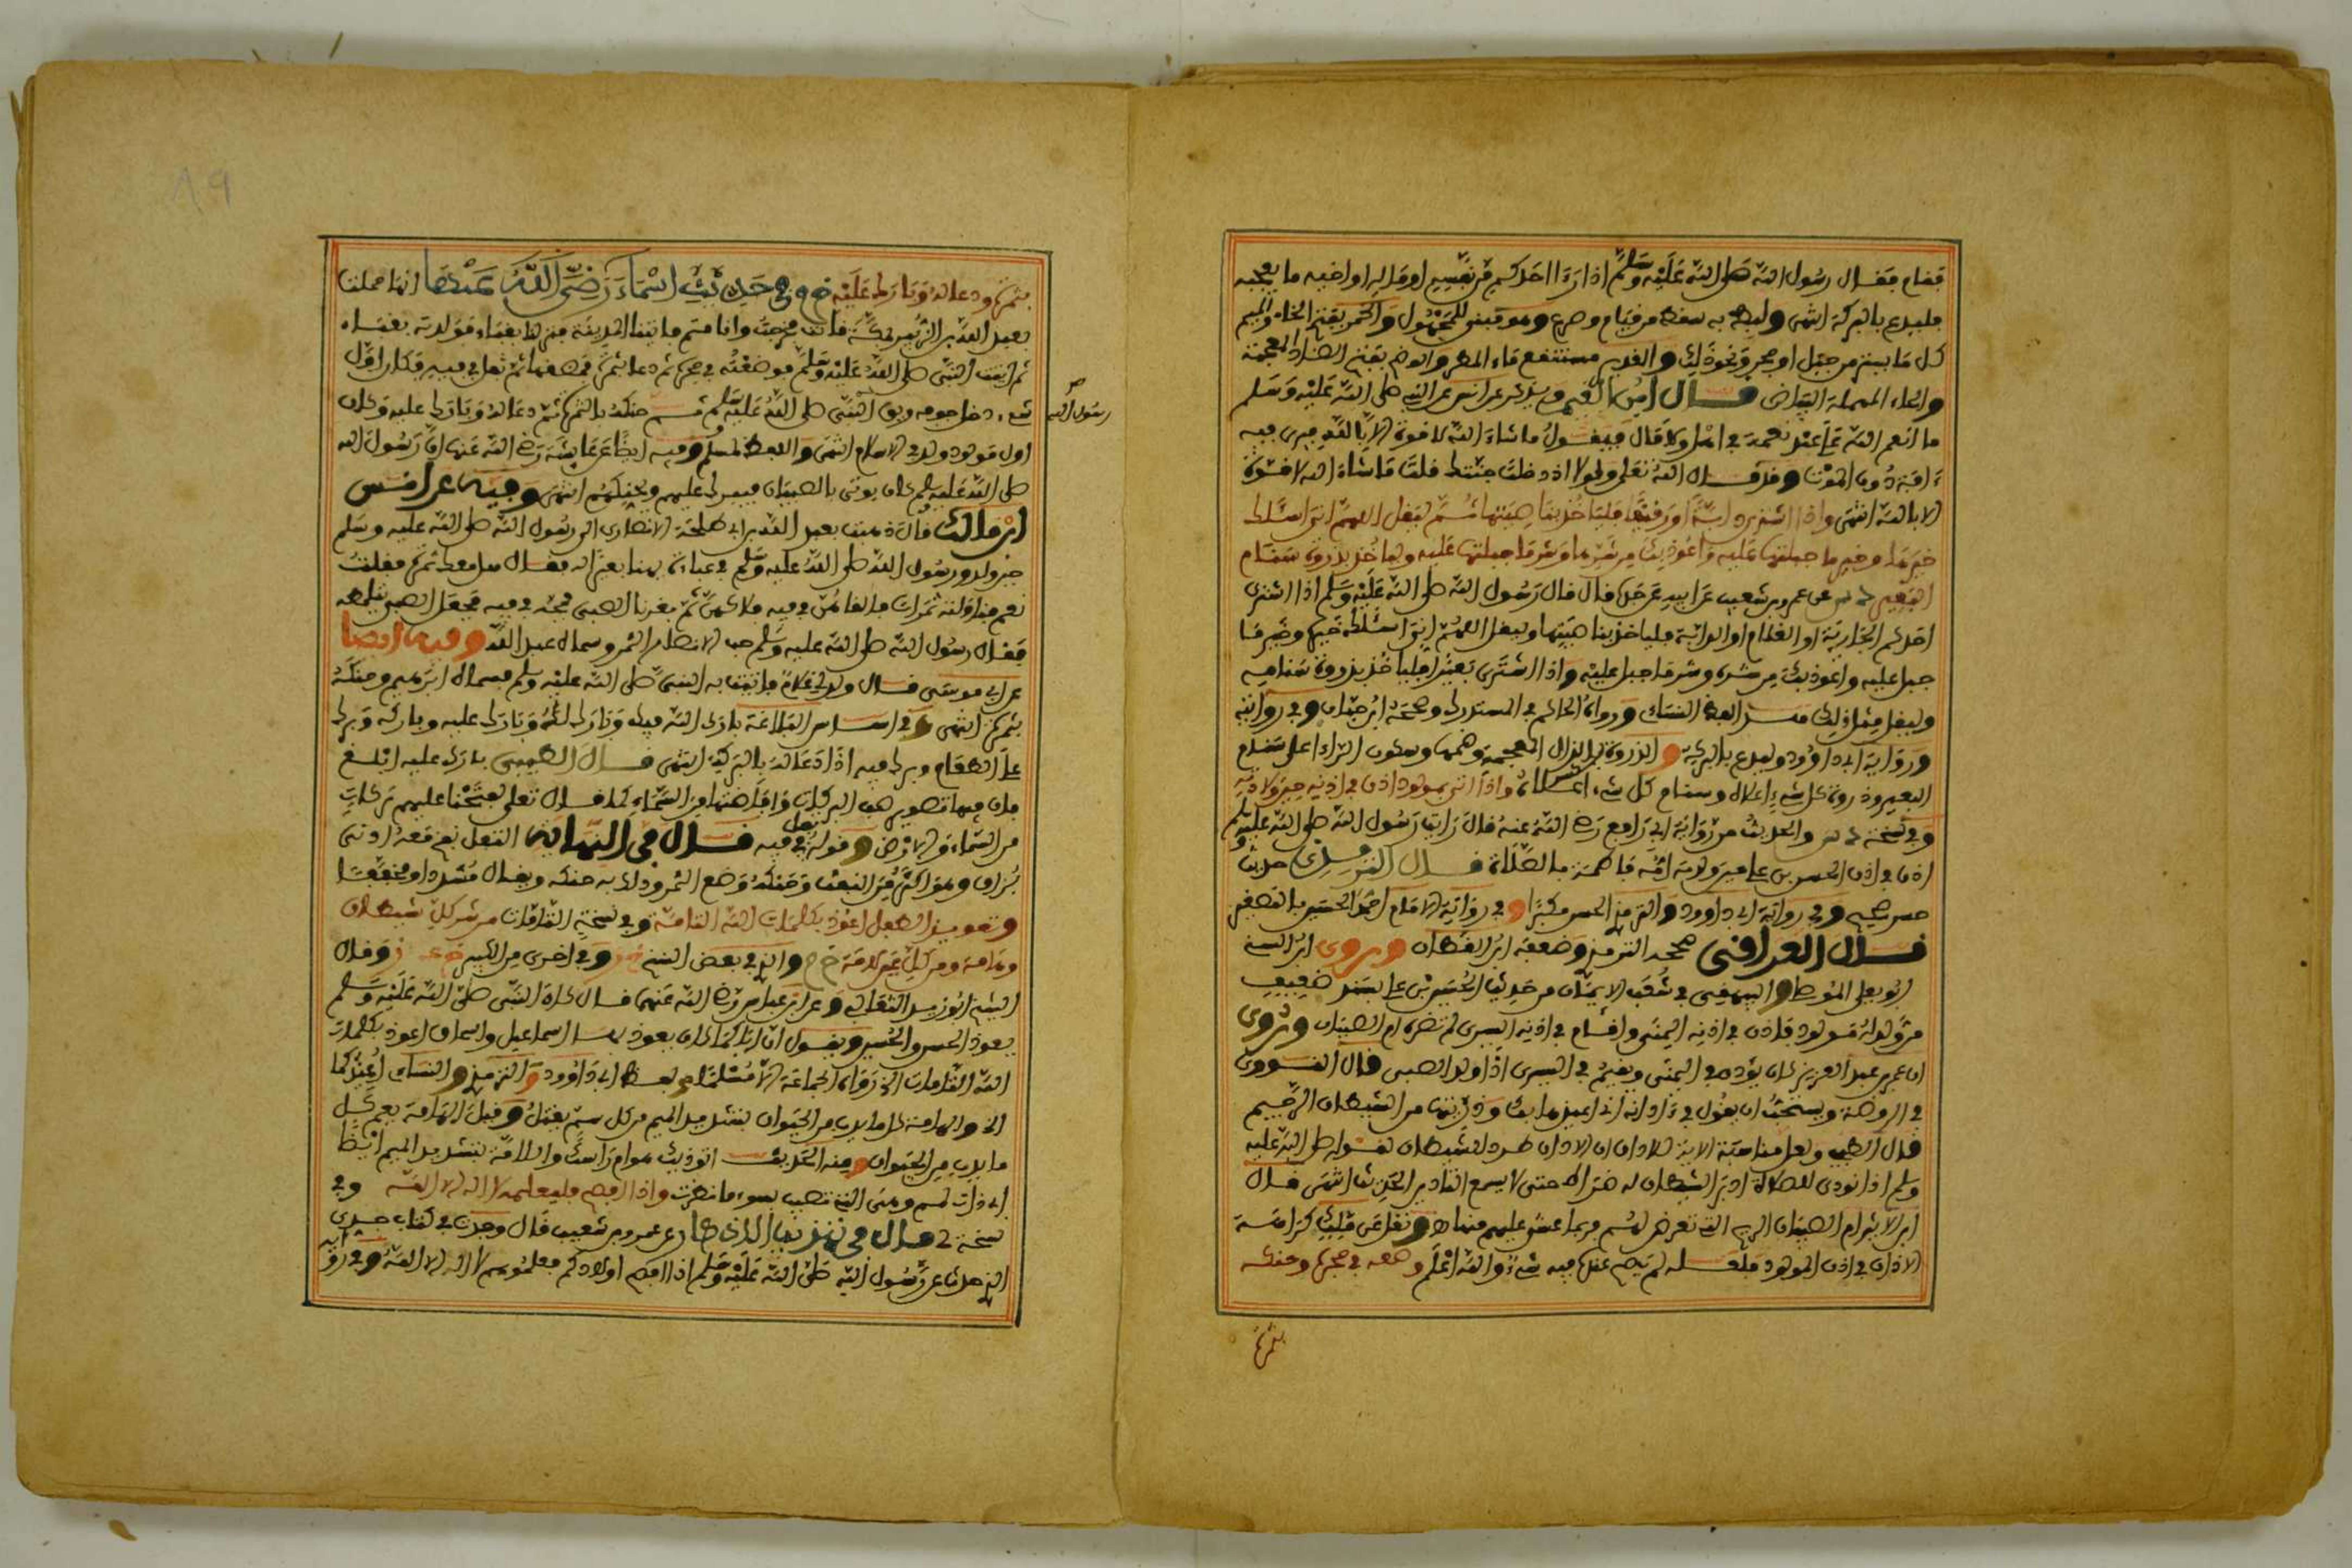 فقام فقال رسول الله صلى الله عليه وسلم اذا رءا احدكم من نفسه او ماله او اخيه ما يعجبه
فليدع بالبركة انتهى ولبط به سقط من قيام وصرع وهو مبني للمجهول والخمر بفتح الخاء والميم
كل ما يستر من جبل او شجر ونحو ذلك والغدير مستنقع ماء المطر والوضح بفتح الضاد المعجمة
والحاء المهملة البياض قال ابن القيم ويذكر عن انس عن النبي صلى الله عليه وسلم
ما انعم الله على عبد نعمة في اهل ولا مال فيقول ما شاء الله لا قوة الا بالله فيرى فيه
ءافة دون الموت وقد قال الله تعالى ولولا اذ دخلت جنتك قلت ما شاء الله لا قوة
الا بالله انتهى واذا اشترى دابة او رقيقا فلياخذ بناصيتها ثم ليقل اللهم اني اسئلك
خيرها وخير ما جبلتها عليه واعوذ بك من شرها وشر ما جبلتها عليه ولياخذ بذروة سنام
البعير عن عمرو بن شعيب عن ابيه عن جده قال قال رسول الله صلى الله عليه وسلم اذا اشترى
احدكم الجارية او الغلام او الدابة فلياخذ بناصيتها وليقل اللهم اني اسئلك خيره وخير ما
جبل عليه واعوذ بك من شره وشر ما جبل عليه واذا اشترى بعيرا فلياخذ بذروة سنامه
وليقل مثل ذلك لفظ النساءي ورواه الحاكم في المستدرك وصححه ابن حبان وفي رواية
ورواية ابي داوود وليدع بالبركة والذروة بالذال المعجمة وضمها وسكون الراء اعلى سنام
البعير وذروة كل شيء اعلاه وسنام كل شيء اعلاه واذا اتي بمولود اذن في اذنيه حين ولادته
وفي نسخة والحديث من رواية ابي رافع رضي الله عنه قال رايت رسول الله صلى الله عليه وسلم
اذن في اذن الحسن بن علي حين ولدته امه فاطمة بالصلاة قال الترمذي حديث
حسن صحيح وفي رواية ابي داوود والترمذي الحسن مكبرا وفي رواية الامام احمد الحسين بالتصغير
قال العراقي صححه الترمذي وضعفه ابن القطان وروى ابن السني
ابو يعلى الموصلي والبيهقي في شعب الايمان من حديث الحسين بن علي بسند ضعيف
من ولد له مولود فاذن في اذنه اليمنى واقام في اذنه اليسرى لم تضره ام الصبيان وروي
ان عمر بن عبد العزيز كان يؤذن في اليمنى ويقيم في اليسرى اذا ولد الصبي قال النووي
في الروضة ويستحب ان يقول في اذنه اني اعيذها بك وذريتها من الشيطان الرجيم
قال الطيبي ولعل مناسبة الاية للاذان ان الاذان طرد للشيطان لقوله صلى الله عليه
وسلم اذا نودي للصلاة ادبر الشيطان له ضراط حتى لا يسمع التاذين الحديث انتهى قال
ابن الاثير ام الصبيان الريح التي تعرض لهم فربما غشي عليهم منها
الاذان في اذن المولود لم والله اعلم وضعه في حجره وحنكه
بتمرة
بتمرة ودعا له وبارك عليه خ م في حديث اسماء رضي الله عنها انها حملت
بعبد الله بن الزبير بمكة قالت فخرجت وانا متم فاتيت المدينة فنزلت بقباء فولدته بقباء
ثم اتيت النبي صلى الله عليه وسلم فوضعته في حجره ثم دعا بتمرة فمضغها ثم تفل في فيه فكان اول
شيء دخل جوفه ريق النبي صلى الله عليه وسلم ثم حنكه بالتمرة ثم دعا له وبارك عليه وكان
رسول الله
اول مولود ولد في الاسلام انتهى واللفظ لمسلم وفيه ايضا عن عائشة رضي الله عنها ان رسول الله
صلى الله عليه وسلم كان يوتى بالصبيان فيبرك عليهم ويحنكهم انتهى وفيه عن انس
ابن مالك قال ذهبت بعبد الله بن ابي طلحة الانصاري الى رسول الله صلى الله عليه وسلم
حين ولد ورسول الله صلى الله عليه وسلم في عباءة يهنا بعيرا له فقال هل معك تمر فقلت
نعم فناولته تمرات فالقاهن في فيه فلاكهن ثم فغر فا الصبي فمجه في فيه فجعل الصبي يتلمظه
فقال رسول الله صلى الله عليه وسلم حب الانصار التمر وسماه عبد الله وفيه ايضا
عن ابي موسى قال ولد لي غلام فاتيت به النبي صلى الله عليه وسلم فسماه ابراهيم وحنكه
بتمرة انتهى وفي اساس البلاغة بارك الله فيك وبارك لك وبارك عليه وباركه وبرك
على الطعام وبرك فيه اذا دعا له بالبركة انتهى قال الطيبي بارك عليه ابلغ
فان فيها تصوير صب البركات وافاضتها من السماء كما قال تعالى لفتحنا عليهم بركات
من السماء والارض وقوله تفل في فيه قال في النهاية التفل نفخ معه ادنى
بزاق وهو اكثر من النفث وحنكه وضع التمر ودلك به حنكه ويقال مشددا ومخففا
وتعويذ الطفل اعوذ بكلمات الله التامة وفي نسخة التامات من شر كل شيطان
وهامة ومن كل عين لامة خ والذي في بعض النسخ وفي اخرى من الكبير وقال
الشيخ ابو زيد الثعالبي وعن ابن عباس رضي الله عنهما قال كان النبي صلى الله عليه وسلم
يعوذ الحسن والحسين ويقول ان اباكما كان يعوذ بها اسماعيل واسحاق اعوذ بكلمات
الله التامات الخ رواه الجماعة الا مسلما ولفظ ابي داوود والترمذي والنساءي اعيذكما
الخ والهامة كل ما يدب من الحيوان بتشديد الميم من كل سم يقتل وقيل الهامة يعم كل
ما يدب من الحيوان ومنه الحديث اتوذيك هوام راسك واللامة بتشديد الميم ايضا
اي ذات لمم وهي التي تصيب بسوء ما نظرت واذا افصح فليعلمه لا اله الا الله وفي
نسخة ي قال في عن عمرو بن شعيب قال وجدت في كتاب جدي
الذي حدث عن رسول الله صلى الله عليه وسلم اذا افصح اولادكم فعلموهم لا اله الا الله وفي رواية